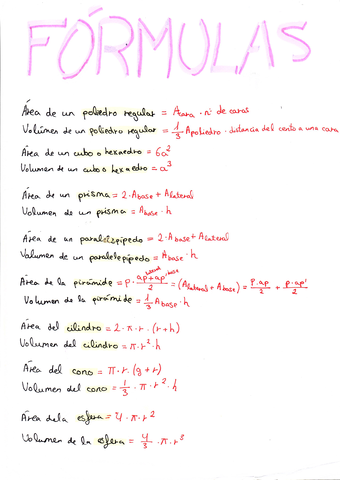 FÓRMULAS
Área de un poliedro regular = Acara · nº de caras
Volúmen de un poliedro regular = 1/3 Apoliedro · distancia del cento a una cara
Área de un cubo o hexaedro = 6a²
Volumen de un cubo o hexaedro = a³
Área de un prisma = 2·Abase + Alateral
Volumen de un prisma = Abase · h
Área de un paralelepípedo = 2·Abase + Alateral
Volumen de un paralelepípedo = Abase · h
Área de la pirámide = P · ap lateral + ap' base / 2 = (Alateral + Abase) = P·ap/2 + P·ap'/2
Volumen de la pirámide = 1/3 Abase · h
Área del cilindro = 2·π·r·(r+h)
Volumen del cilindro = π·r²·h
Área del cono = π·r·(g+r)
Volumen del cono = 1/3 · π·r²·h
Área dela esfera = 4·π·r²
Volumen de la esfera = 4/3 · π·r³